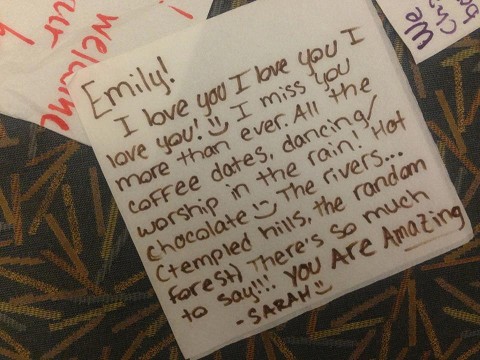 Emily!
I love you I love you I
love you! I miss you
more than ever. All the
coffee dates, dancing/
worship in the rain! Hot
chocolate The rivers...
(templed hills, the random
forest) There's so much
to say!!! You Are Amazing
-SARAH
welcome
ur
We